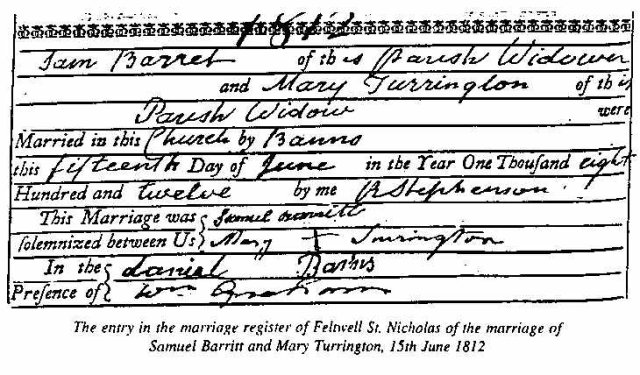 1812
Sam Barret of this Parish Widower
and Mary Turrington of this
Parish Widow were
Married in this Church by Banns
this fifteenth Day of June in the Year One Thousand eight
Hundred and twelve by me R Stephenson
This Marriage was Samuel
solemnized between Us Mary + Turrington
In the daniel
Presence of Wm Graham
The entry in the marriage register of Feltwell St. Nicholas of the marriage of
Samuel Barritt and Mary Turrington, 15th June 1812